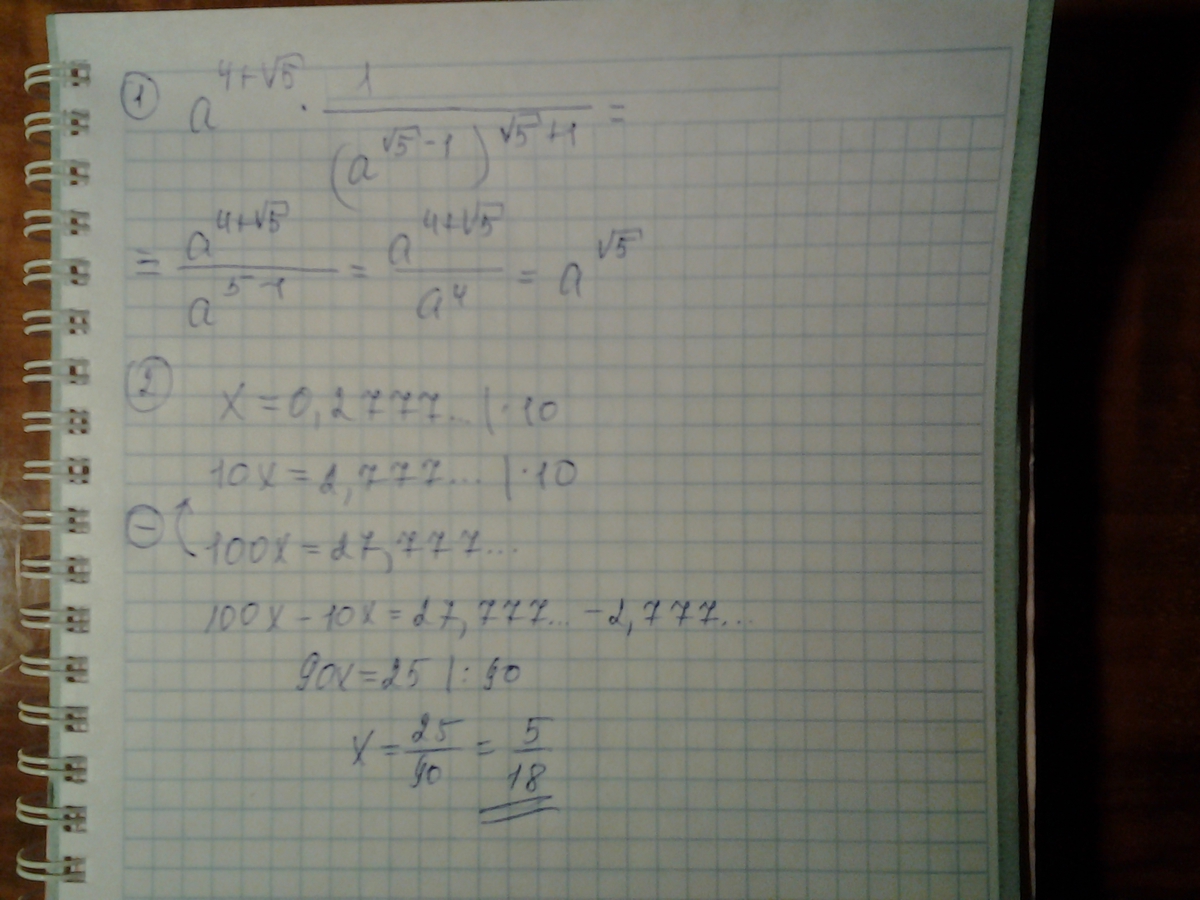 ① a^(4+√5) · 1/(a^(√5-1))^(√5+1) =
= a^(4+√5)/a^(5-1) = a^(4+√5)/a^4 = a^√5
② x = 0,2777... | · 10
10x = 2,777... | · 10
⊖ 100x = 27,777...
100x - 10x = 27,777... - 2,777...
90x = 25 | : 90
x = 25/90 = 5/18